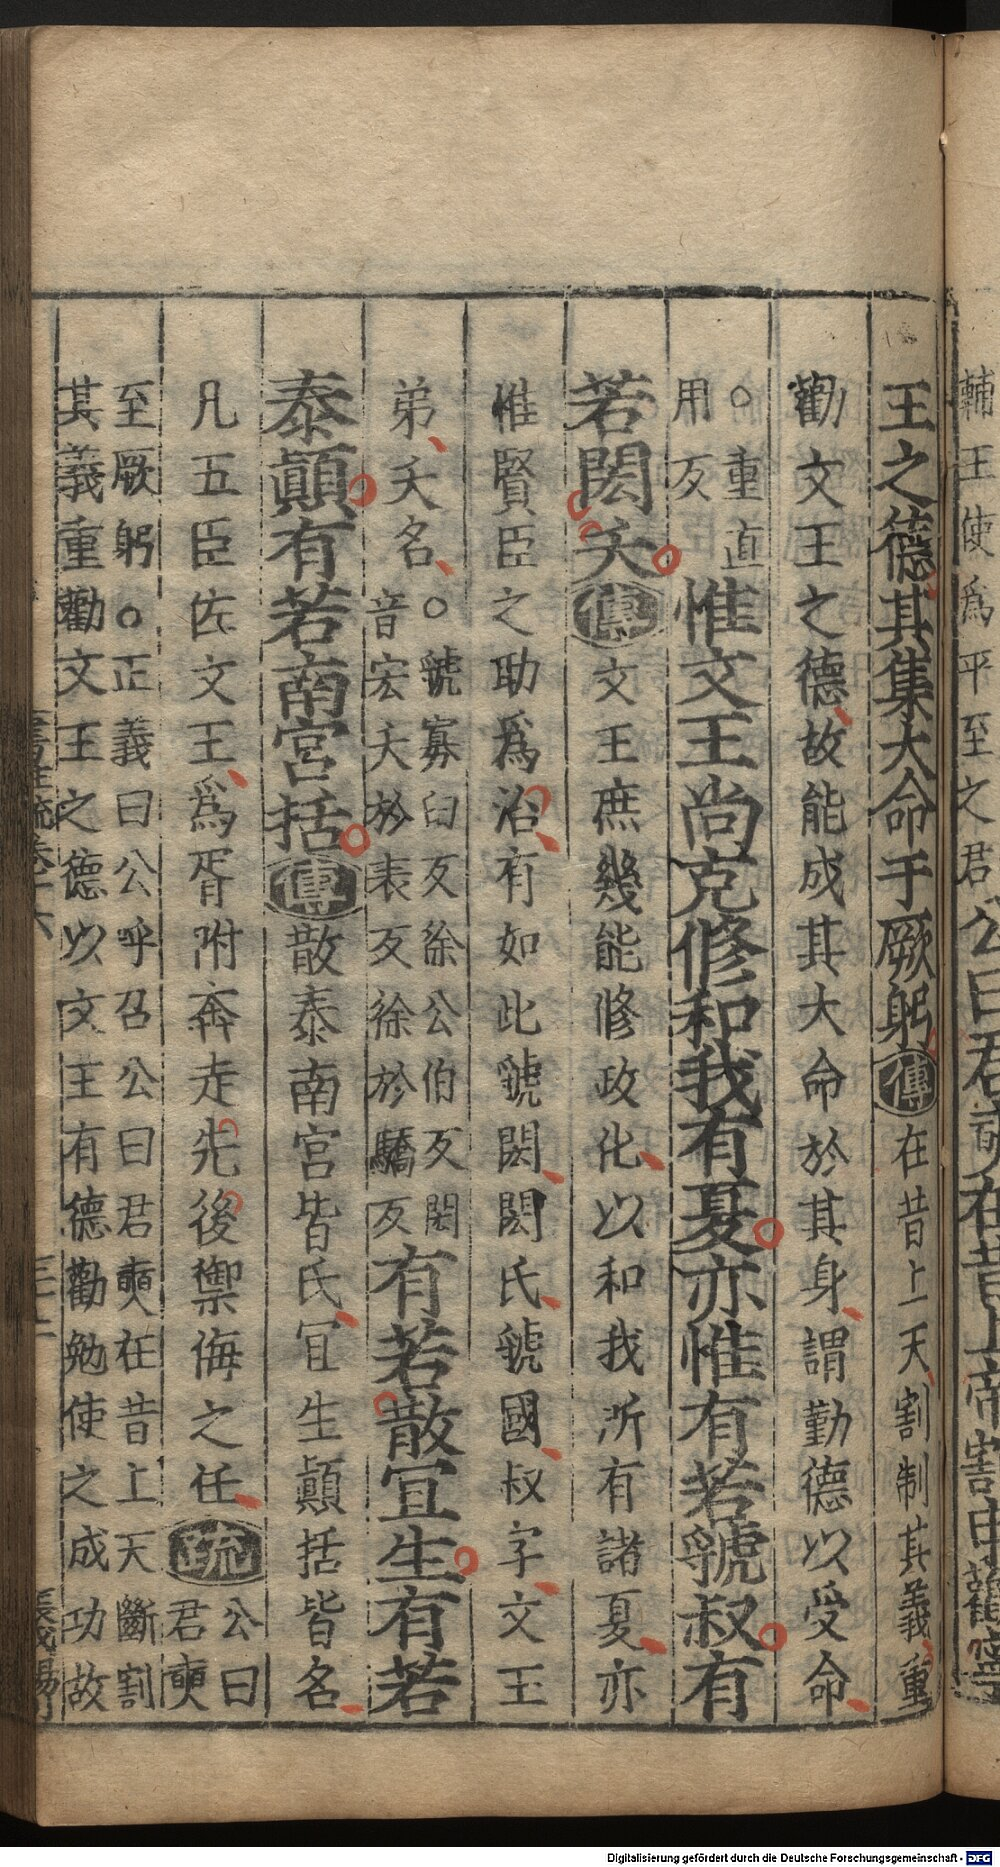 輔王使爲平至之君公曰君奭在昔上帝割申勸寧
王之德其集大命于厥躬傳在昔上天割制其義重
勸文王之德故能成其大命於其身謂勤德以受命
○重直
用反
惟文王尚克修和我有夏亦惟有若虢叔有
若閎夭傳文王庶幾能修政化以和我所有諸夏亦
惟賢臣之助爲治有如此虢閎閎氏虢國叔字文王
弟夭名
○虢寡白反徐公伯反閎
音宏夭於表反徐於驕反
有若散宜生有若
泰顛有若南宮括傳散泰南宮皆氏宜生顛括皆名
凡五臣佐文王爲胥附奔走先後禦侮之任疏
公曰
君奭
至厥躬○正義曰公呼召公曰君奭在昔上天斷割
其義重勸文王之德以文王有德勸勉使之成功故
Digitalisierung gefördert durch die Deutsche Forschungsgemeinschaft - DFG